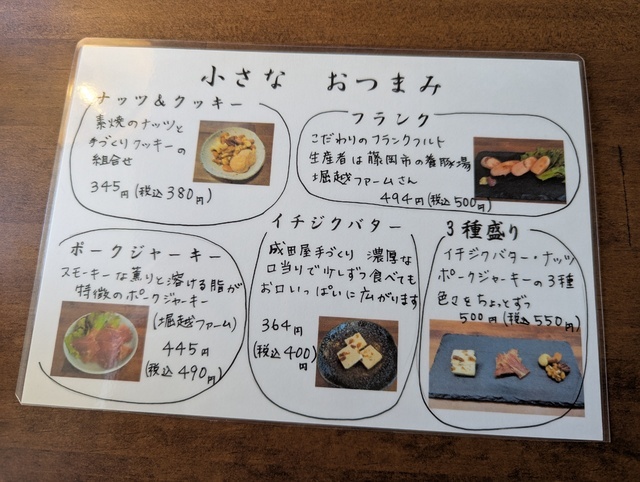 小さな おつまみ
ナッツ&クッキー
素焼のナッツと
手づくりクッキーの
組合せ
345円(税込380円)
フランク
こだわりのフランクフルト
生産者は藤岡市の養豚湯
堀越ファームさん
494円(税込500円)
ポークジャーキー
スモーキーな薫りと溶ける脂が
特徴のポークジャーキー
(堀越ファーム)
445円
(税込490円)
イチジクバター
成田屋手づくり 濃厚な
口当りで少しずつ食べても
お口いっぱいに広がります
364円
(税込400円)
3種盛り
イチジクバター・ナッツ
ポークジャーキーの3種
色々をちょっとずつ
500円(税込550円)